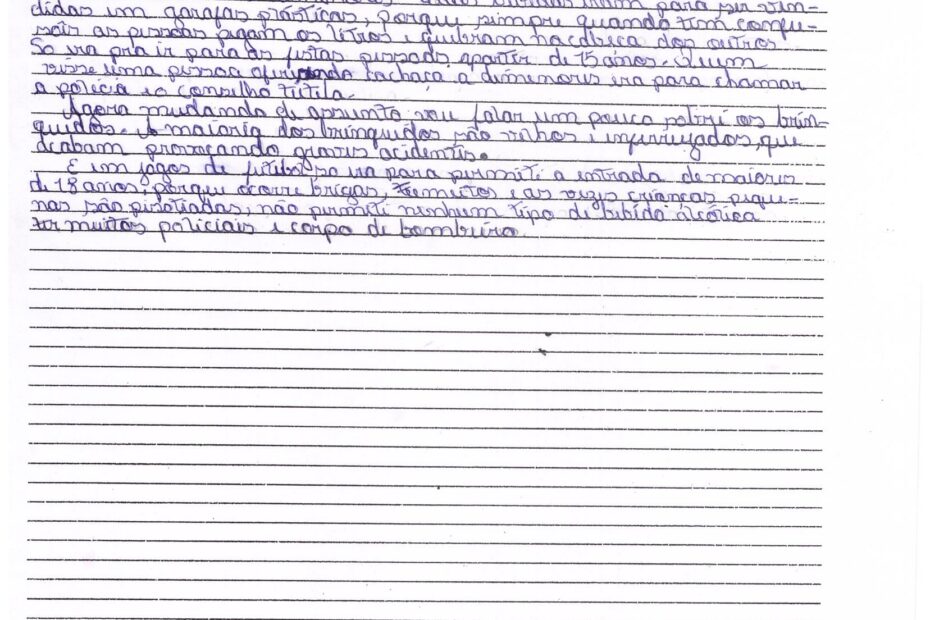 didas im garafas prásticas, porque simpre quando tim confu-
são as pissoas pigam os litros i quibram na cabeça dos outros
So ira pra ir para as fistas pissoas apartir de 15 anos. Quim
visse uma pissoa ofericendo cachaça a dimenoris ira para chamar
a polícia i o consilho tutila.
Agora mudando de assunto vou falar um pouco sobri os brin-
quidos. A maioria dos brinquidos são vilhos i infirrujados, que
acabam provocando gravis acidentis.
E im jogos de futibol so ira para permiti a intrada de maioris
de 18 anos, porque ocorre brigas, e as vizis crianças piqui-
nas são pisotiadas, não permiti ninhum tipo de bibida alcólica
tir muitos policiais i corpo de bombeiro.